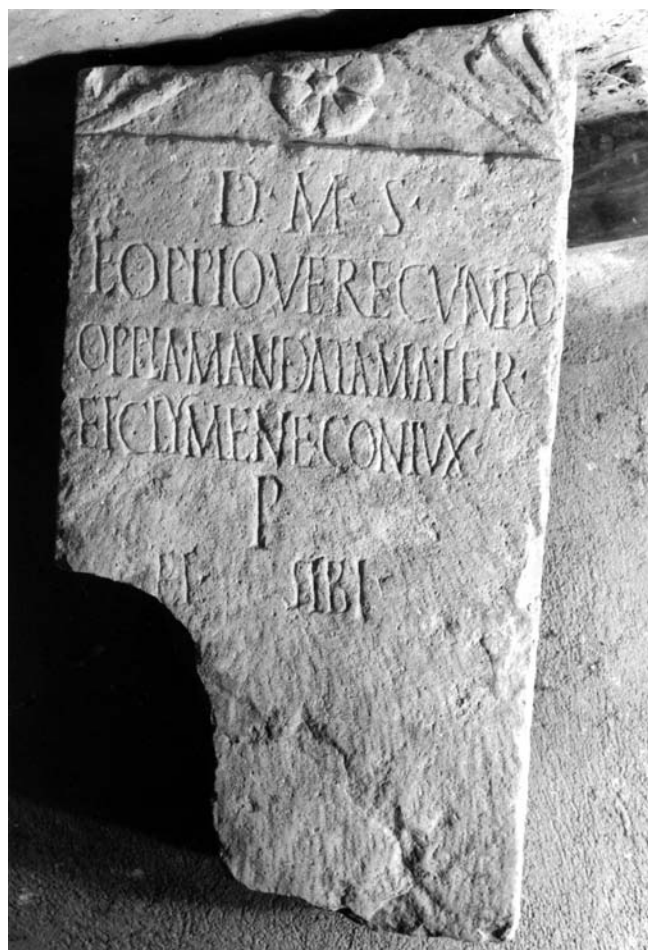 D·M·S·
P·OPPIO·VERECVNDO
OPPIA·MANDATA·MATER·
ET CLYMENE CONIVX·
P
ET· SIBI·